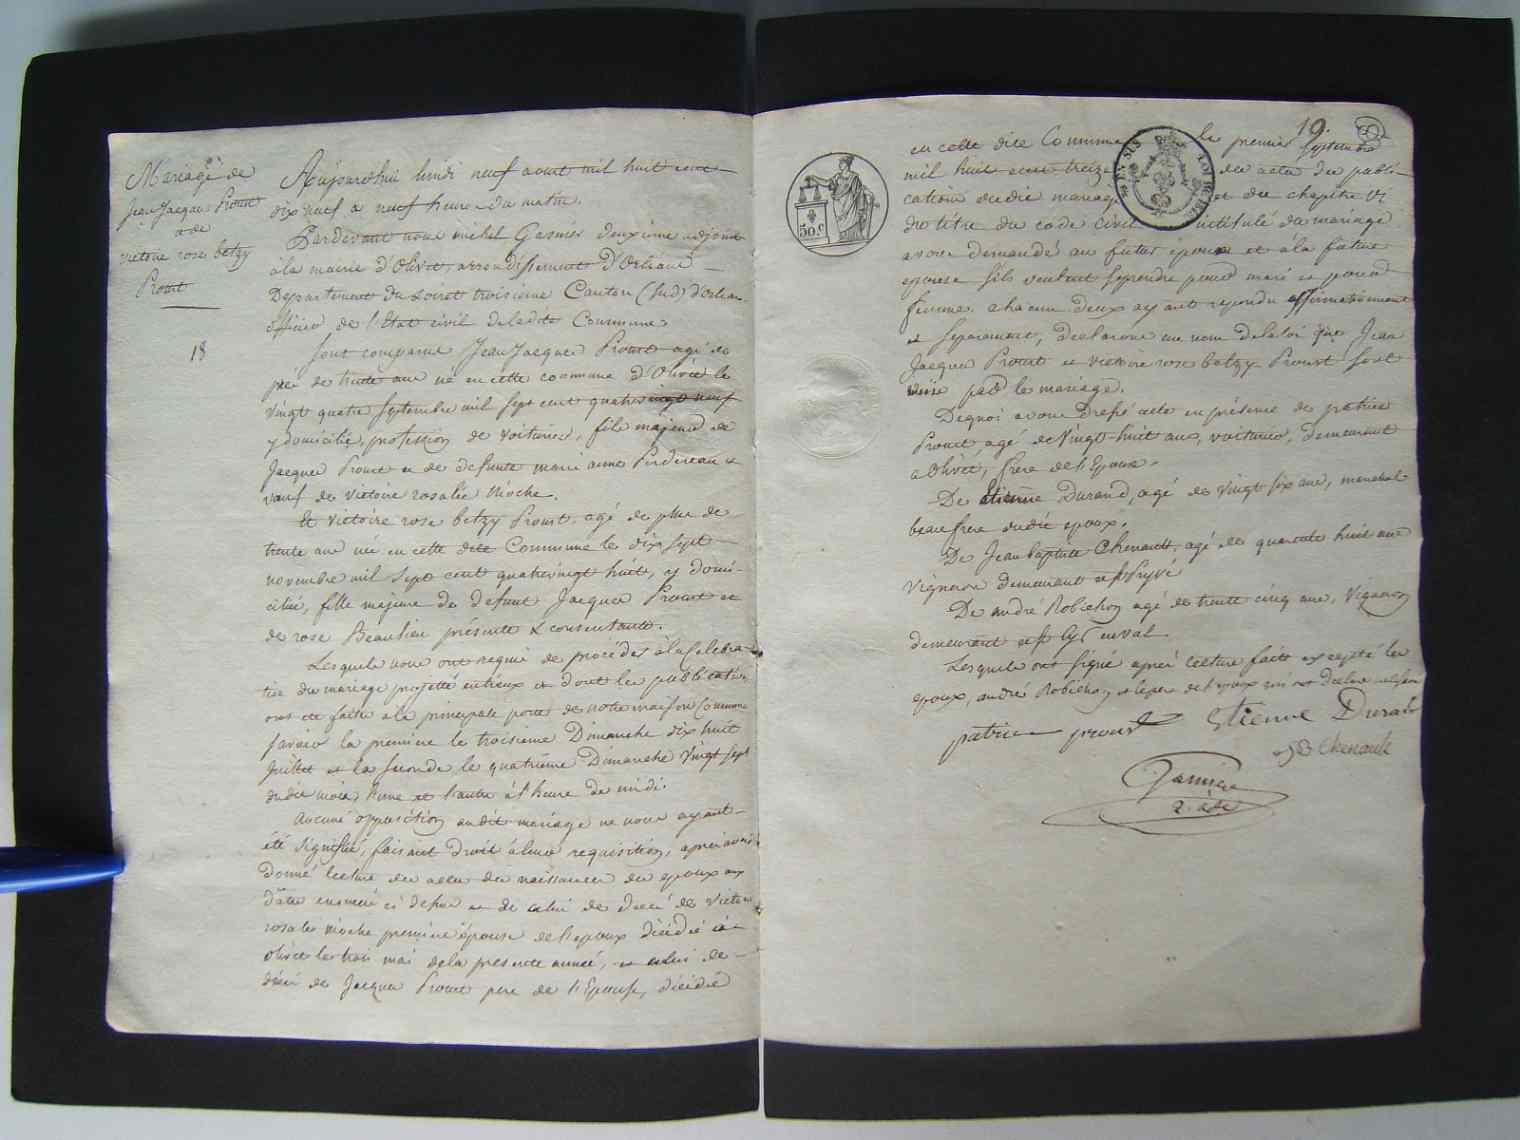 Mariage de
Jean Jacques Proust
à de
victoire rose betzy
Proust
18
Aujourd'hui lundi neuf aout mil huit cent
dix neuf a neuf heure du matin.
Pardevant nous michel Garnier deuxieme adjoint
à la mairie d'Olivet, arrondissement d'Orléans
Département du Loiret troisieme Canton (sud) d'Orléans
officier de l'Etat civil de ladite Commune.
sont comparus Jean Jacques Proust agé de
près de trente ans né en cette commune d'Olivet le
vingt quatre septembre mil sept cent quatrevingt neuf
y domicilié, profession de voiturier, fils majeur de
Jacques Proust et de defunte marie anne Perdereau &
veuf de victoire rosalie Nioche.
Et victoire rose betzy Proust, agé de plus de
trente ans née en cette dite Commune le dix sept
novembre mil sept cent quatrevingt huit, y domi-
ciliée, fille majeure de defunt Jacques Proust et
de rose Beaulieu présente & consentante.
Lesquels nous ont requis de procéder à la Celebra-
tion du mariage projetté entreux et dont les publications
ont été faites a la principale porte de notre maison Commune
savoir la premiere le troisieme Dimanche dix huit
Juillet et la seconde le quatrieme Dimanche vingt sept
dudit mois, l'une et l'autre à l'heure de midi.
Aucune opposition audit mariage ne nous ayant
été signifiée, faisant droit à leur requisition, après avoir
donné lecture des actes de naissances des epoux aux
dates enoncées ci dessus et de celui de decès de victoire
rosalie nioche premiere épouse de l'epoux décédée à
olivet le trois mai de la presente année, et celui de
décès de Jacques Proust pere de l'Epouse, décédé
19.
en cette dite Commune le premier septembre
mil huit cent treize des actes de publi-
cations dudit mariage et du chapitre VI
du titre du code civil intitulé du mariage
avons demandé au futur époux et à la future
epouse s'ils veulent se prendre pour mari et pour
femme. chacun deux ayant repondu affirmativement
et séparément, declarons au nom de la loi que Jean
Jacques Proust et victoire rose betzy Proust sont
unis par le mariage.
De quoi avons dressé acte en présence de patrice
Proust, agé de vingt-huit ans, voiturier, demeurant
a Olivet, frere de l'Epoux.
De etienne Durand, agé de vingt six ans, marechal
beau frere dudit epoux.
De Jean baptiste Chenault, agé de quarante huit ans
vigneron demeurant a St Pryvé
De andré Robichon agé de trente cinq ans, vigneron
demeurant a St Cyr en val
Lesquels ont signé après lecture faite excepté les
epoux, andré Robichon et la mere de l'epoux qui ont declaré ne le savoir
patrice proust Etienne Durand
JB Chenault
Garnier
2. adj
50.C